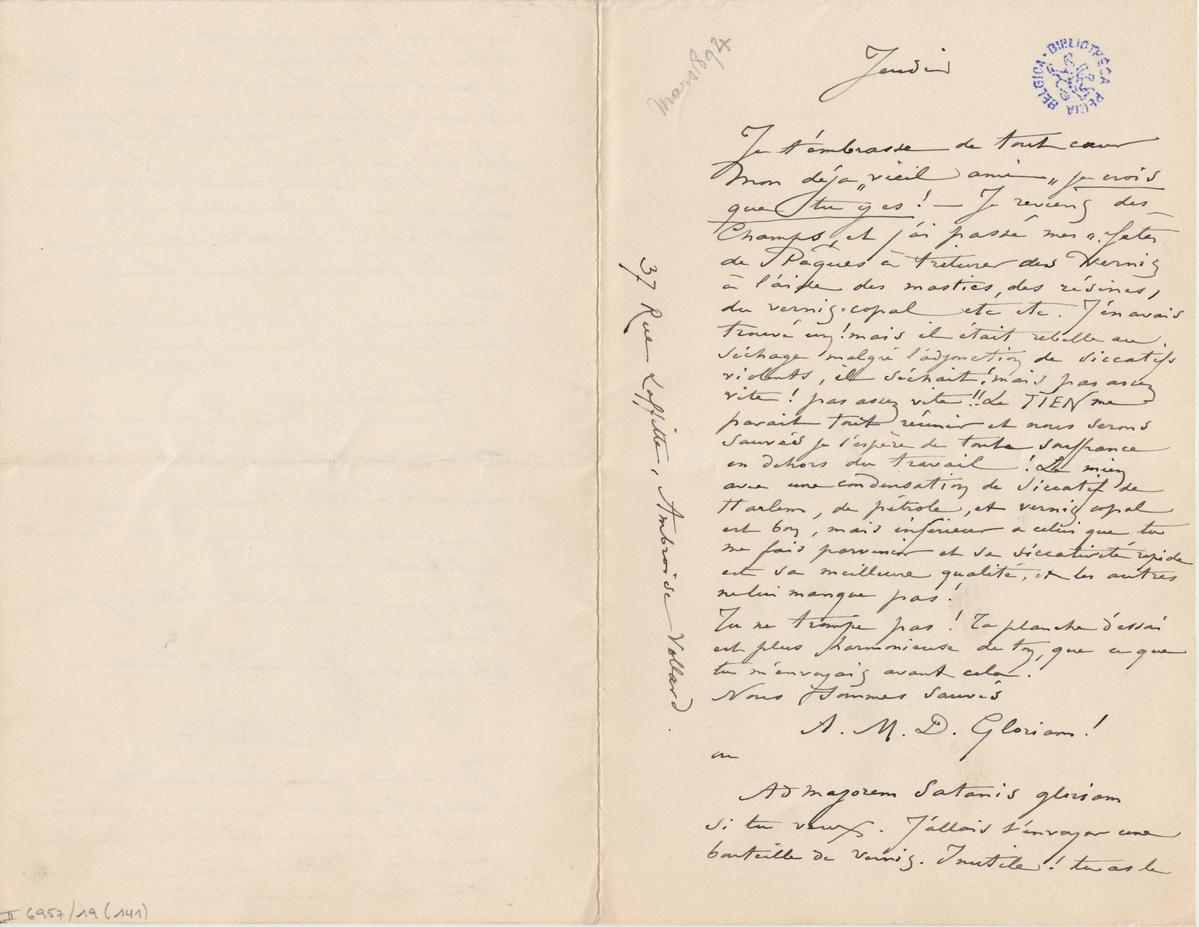 Mars 1892
Jeudi
BIBLIOTHECA REGIA BELGICA
Je t'embrasse de tout cœur
Mon déja „vieil ami„ je crois
que tu y es ! — Je reviens des
Champs, et j'ai passé mes „fetes
de Pâques à triturer des Vernis
à l'aide des mastics, des résines,
du vernis-copal etc etc. J'en avais
trouvé un ! mais il était rebelle au
séchage malgré l'adjonction de siccatifs
violents, il séchait ! mais pas assez
vite ! pas assez vite !! Le TIEN me
parait tout réunir et nous serons
sauvés je l'espère de toute souffrance
en dehors du travail ! Le mien
avec une condensation de Siccatif de
Harlem, de pétrole, et vernis copal
est bon, mais inférieur a celui que tu
me fais parvenir et sa siccativité rapide
est sa meilleure qualité, et les autres
ne lui manque pas !
Tu ne trompe pas ! Ta planche d'essai
est plus harmonieuse de ton, que ce que
tu m'envoyais avant cela.
Nous Sommes sauvés
A. M. D. Gloriam !
ou
Ad majorem Satanis gloriam
si tu veux. J'allais t'envoyer une
bouteille de vernis. Inutile ! tu as le
37 Rue Laffitte, Ambroise Vollard.
II 6957/19 (141)